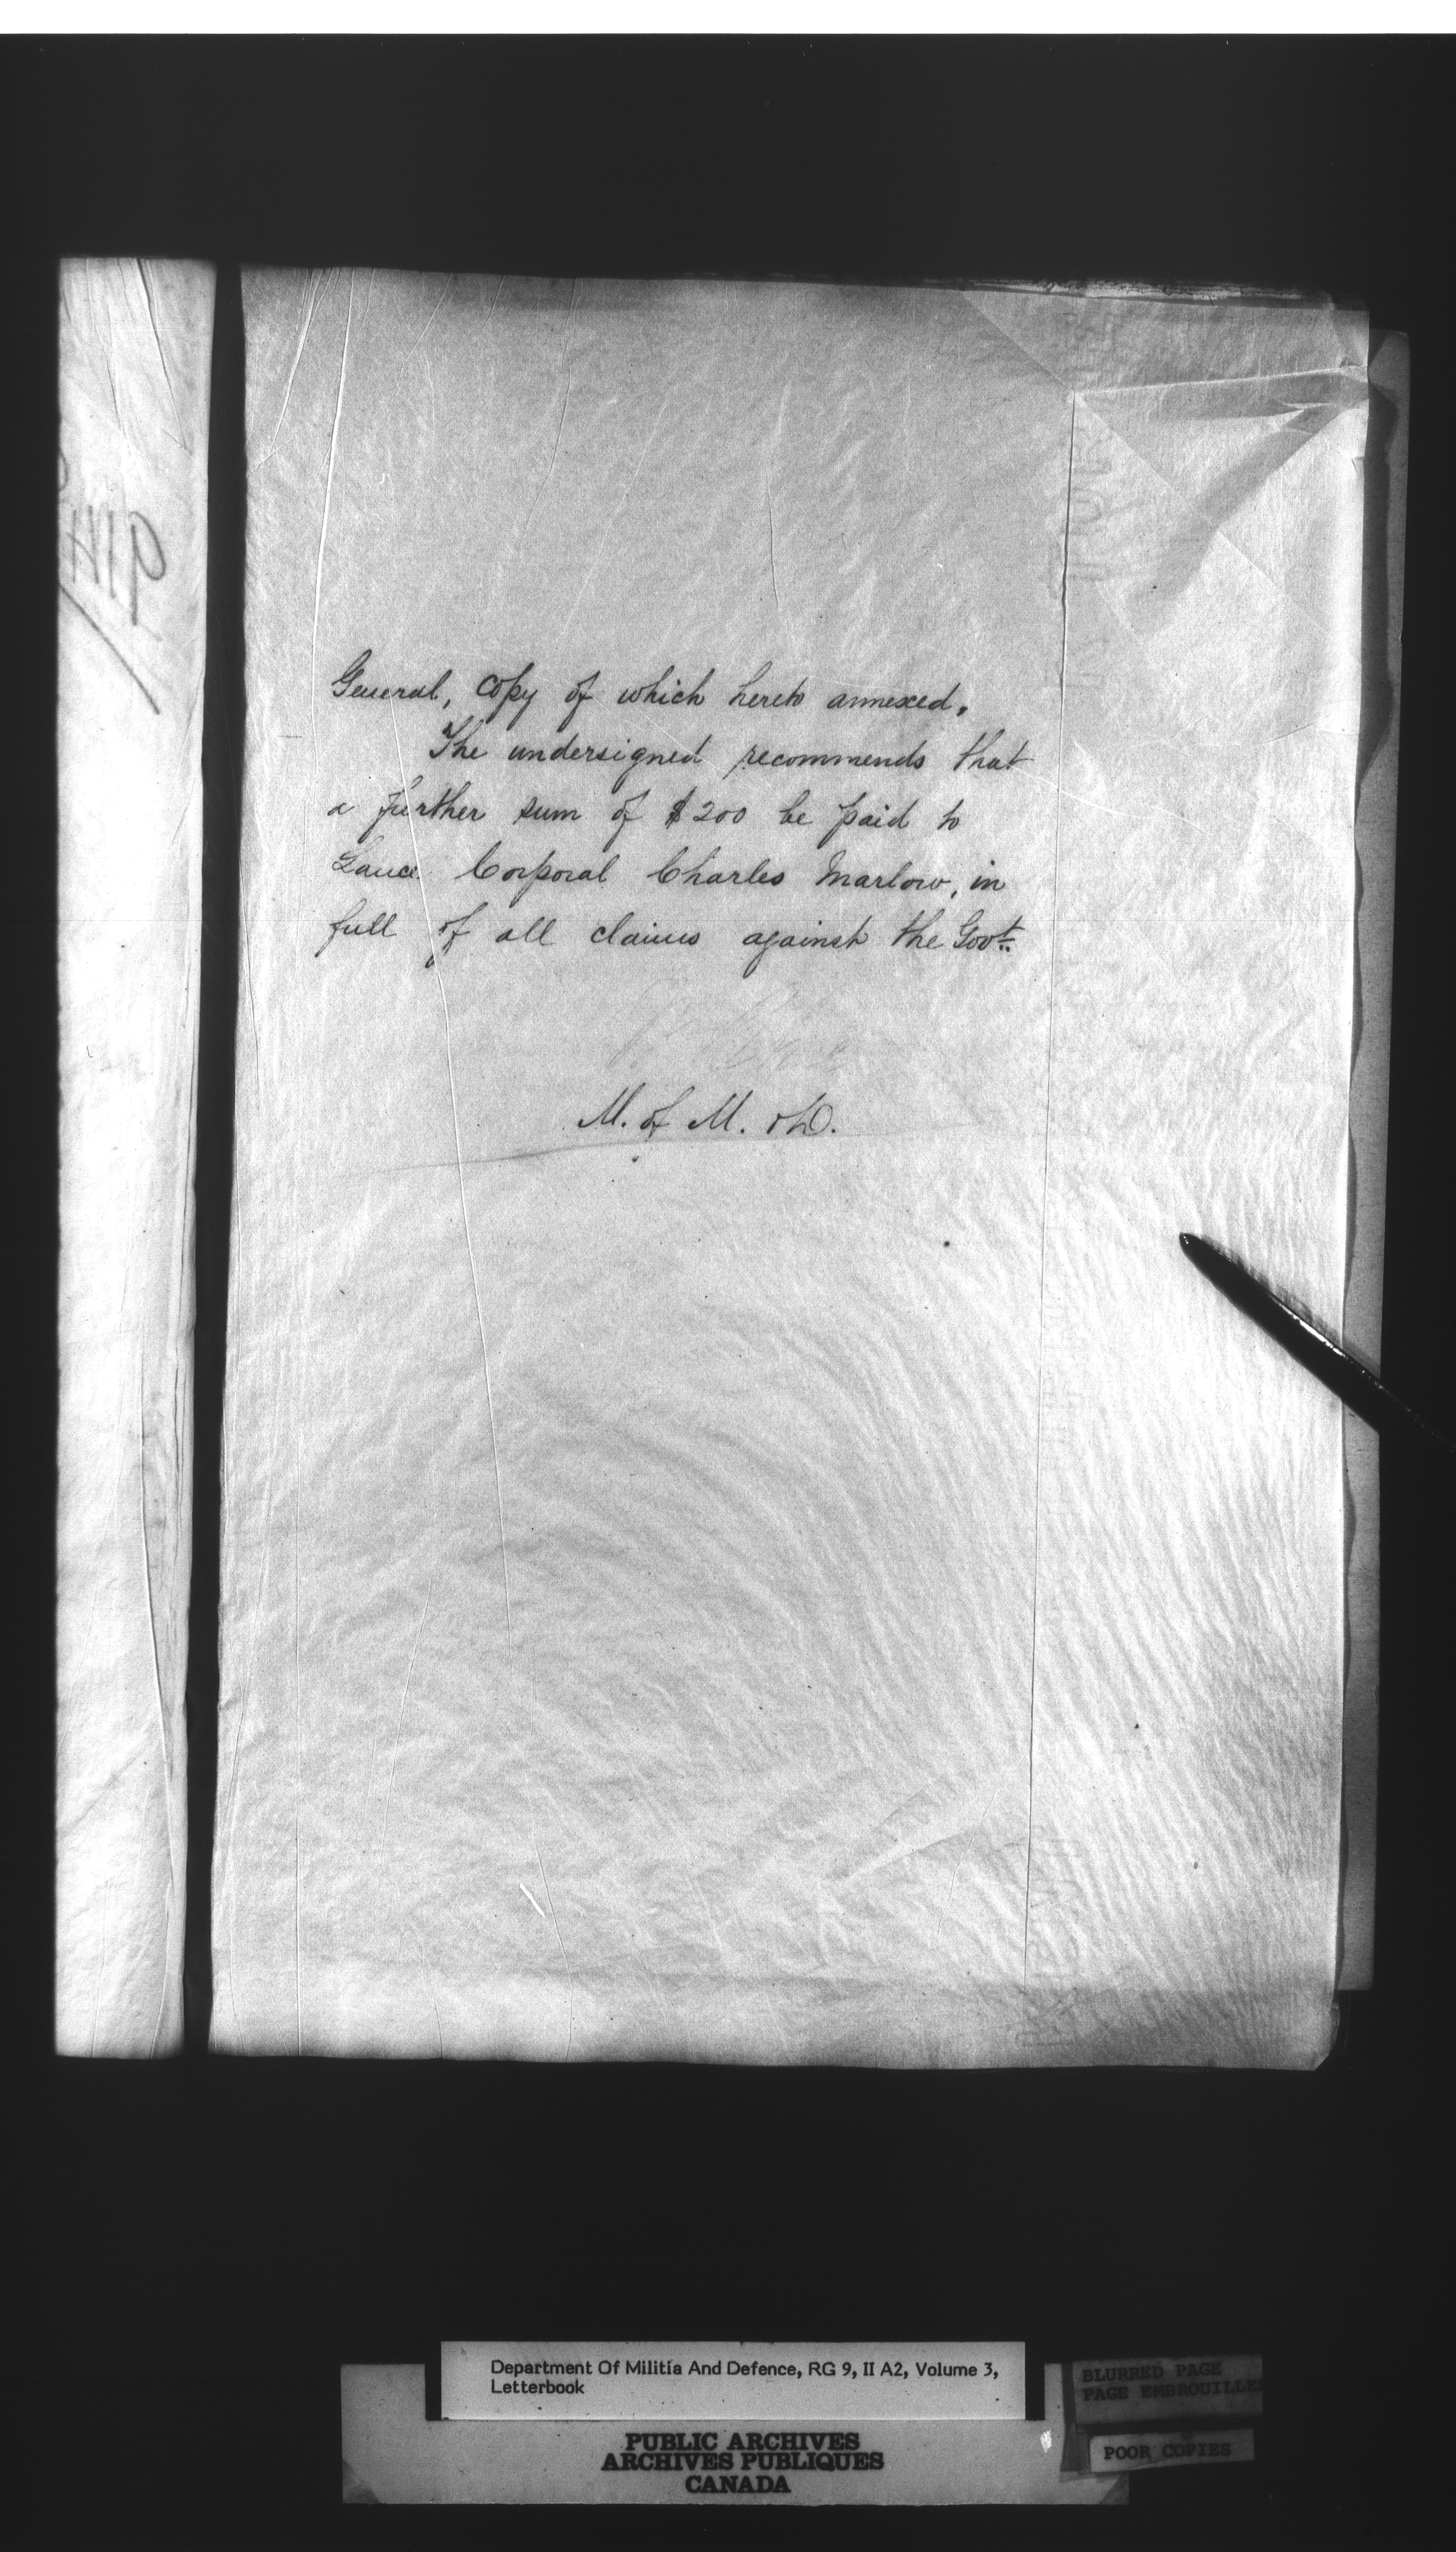 General, copy of which hereto annexed.
The undersigned recommends that
a further sum of $200 be paid to
Lance Corporal Charles Marlow, in
full of all claims against the Govt.
M. of M. & D.
Department Of Militia And Defence, RG 9, II A2, Volume 3,
Letterbook
PUBLIC ARCHIVES
ARCHIVES PUBLIQUES
CANADA
BLURRED PAGE
PAGE EMBROUILLEE
POOR COPIES